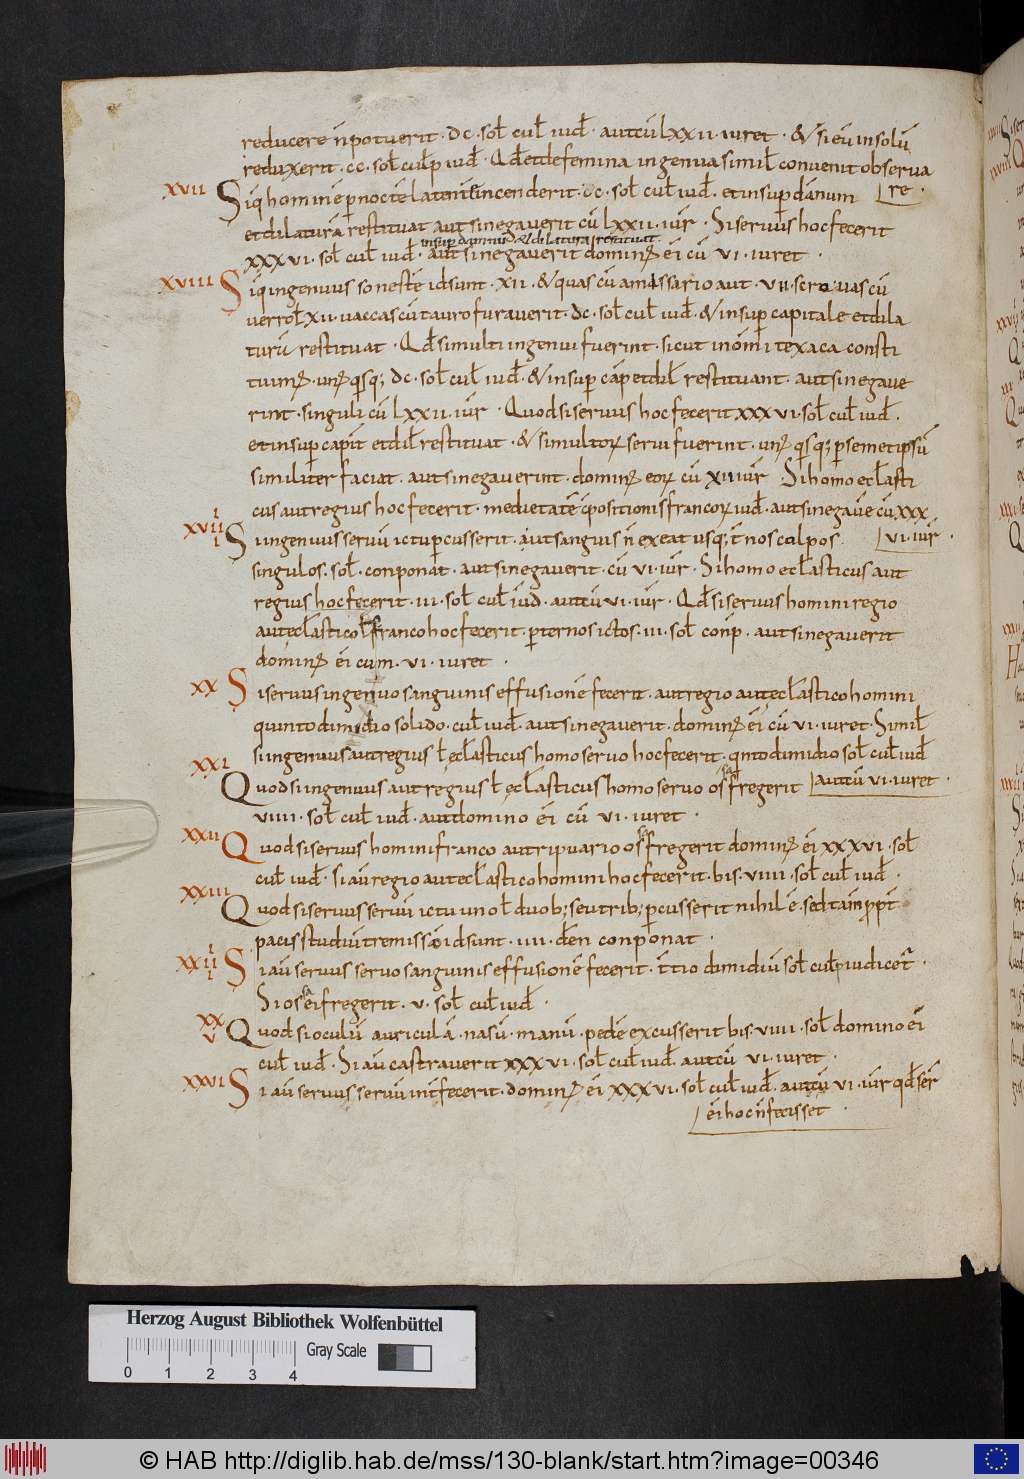 reducere n̄ potuerit · dc · sol̄ cul̄ iud̄ · aut cū lxxii · iuret · & si eū insolū
reduxerit · cc · sol̄ culp̄ iud̄ · Qd̄ et de femina ingenua simil̄ convenit observa
re ·
xvii Siq̄ hominē p̄ noctē latenł incenderit · dc · sol̄ cul̄ iud̄ · et insup̄ dānum
et dilaturā restituat aut si negaverit cū lxxii · iur̄ · Si servus hoc fecerit
insup̄ damnū & dilatura restituat
xxxvi · sol̄ cul̄ iud̄ · aut si negaverit domin' ei cū vi · iuret ·
xviii Siq̄ ingenuus sonestē id sunt · xii · & quas cū amissario aut · vii · scrovas cū
verro ł xii · vaccas cū tauro furaverit · dc · sol̄ cul̄ iud̄ · & insup̄ capitale et dila
turū restituat · Qd̄ si multi ingenui fuerint · sicut in omi texaca consti
tuim' · un' q̄sq; dc · sol̄ cul̄ iud̄ · & insup̄ cap̄ et dil̄ restituant · aut si negave
rint · singuli cū lxxii · iur̄ · Quod si servus hoc fecerit xxxvi · sol̄ cul̄ iud̄ ·
et insup̄ capit̄ et dil̄ restituat · & si multorꝝ servi fuerint · un' q̄sq; p̄ semetipsū
similiter faciat · aut si negaverint · domin' eorꝝ cū xii iur̄ Si homo ecl̄asti
cus aut regius hoc fecerit · medietatē c̄positionis francorꝝ iud̄ · aut si negavē cū xxx
vi · iur̄ ·
xviiii Si ingenuus servū ictu percusserit · aut sanguis n̄ exeat usq; t̄nos colpos
singulos · sol̄ · conponat · aut si negaverit · cū vi · iur̄ · Si homo ecl̄asticus aut
regius hoc fecerit · iii · sol̄ cul̄ iud · aut cū vi · iur̄ · Qd̄ si servus homini regio
aut ecl̄astico ł franco hoc fecerit · p̄ ternos ictos · iii · sol̄ conp̄ · aut si negaverit
domin' ei cum · vi · iuret ·
xx Si servus ingenuo sanguinis effusionē fecerit · aut regio aut ecl̄astico homini
quinto dimidio solido · cul̄ iud̄ · aut si negaverit · domin' ei cū vi · iuret · Simil̄
si ingenuus aut regius ł ecl̄asticus homo servo hoc fecerit · quinto dimidio sol̄ cul̄ iud̄
aut cū vi · iuret ·
xxi Quod si ingenuus aut regius ł ecl̄asticus homo servo os fregerit
viiii · sol̄ cul̄ iud̄ · aut domino ei cū vi · iuret ·
xxii Quod si servus homini franco aut ripuario os fregerit domin' ei xxxvi · sol̄
cul̄ iud̄ · Si aū regio aut ecl̄astico homini hoc fecerit · bis · viiii · sol̄ cul̄ iud̄ ·
xxiii Quod si servus servū ictu uno ł duob; seu trib; p̄cusserit nihil ē · sed tam̄ pp̄t
pacis studiū tremissē id sunt · iiii · den̄ conponat ·
xxiiii Si aū servus servo sanguinis effusionē fecerit · t̄tio dimidiū sol̄ culp̄ iudicet̄ ·
Si os ei fregerit · v · sol̄ cul̄ iud̄ ·
xxv Quod si oculū auriculā · nasū · manū · pedē excusserit bis · viiii · sol̄ domino ei
cul̄ iud̄ · Si aū castraverit xxxvi · sol̄ cul̄ iud̄ · aut cū vi · iuret ·
xxvi Si aū servus servū int̄fecerit · domin' ei xxxvi · sol̄ cul̄ iud̄ · aut cū vi · iur̄ qd̄ ser̄
ei hoc n̄ fecisset ·
Herzog August Bibliothek Wolfenbüttel
Gray Scale
0 1 2 3 4
© HAB http://diglib.hab.de/mss/130-blank/start.htm?image=00346